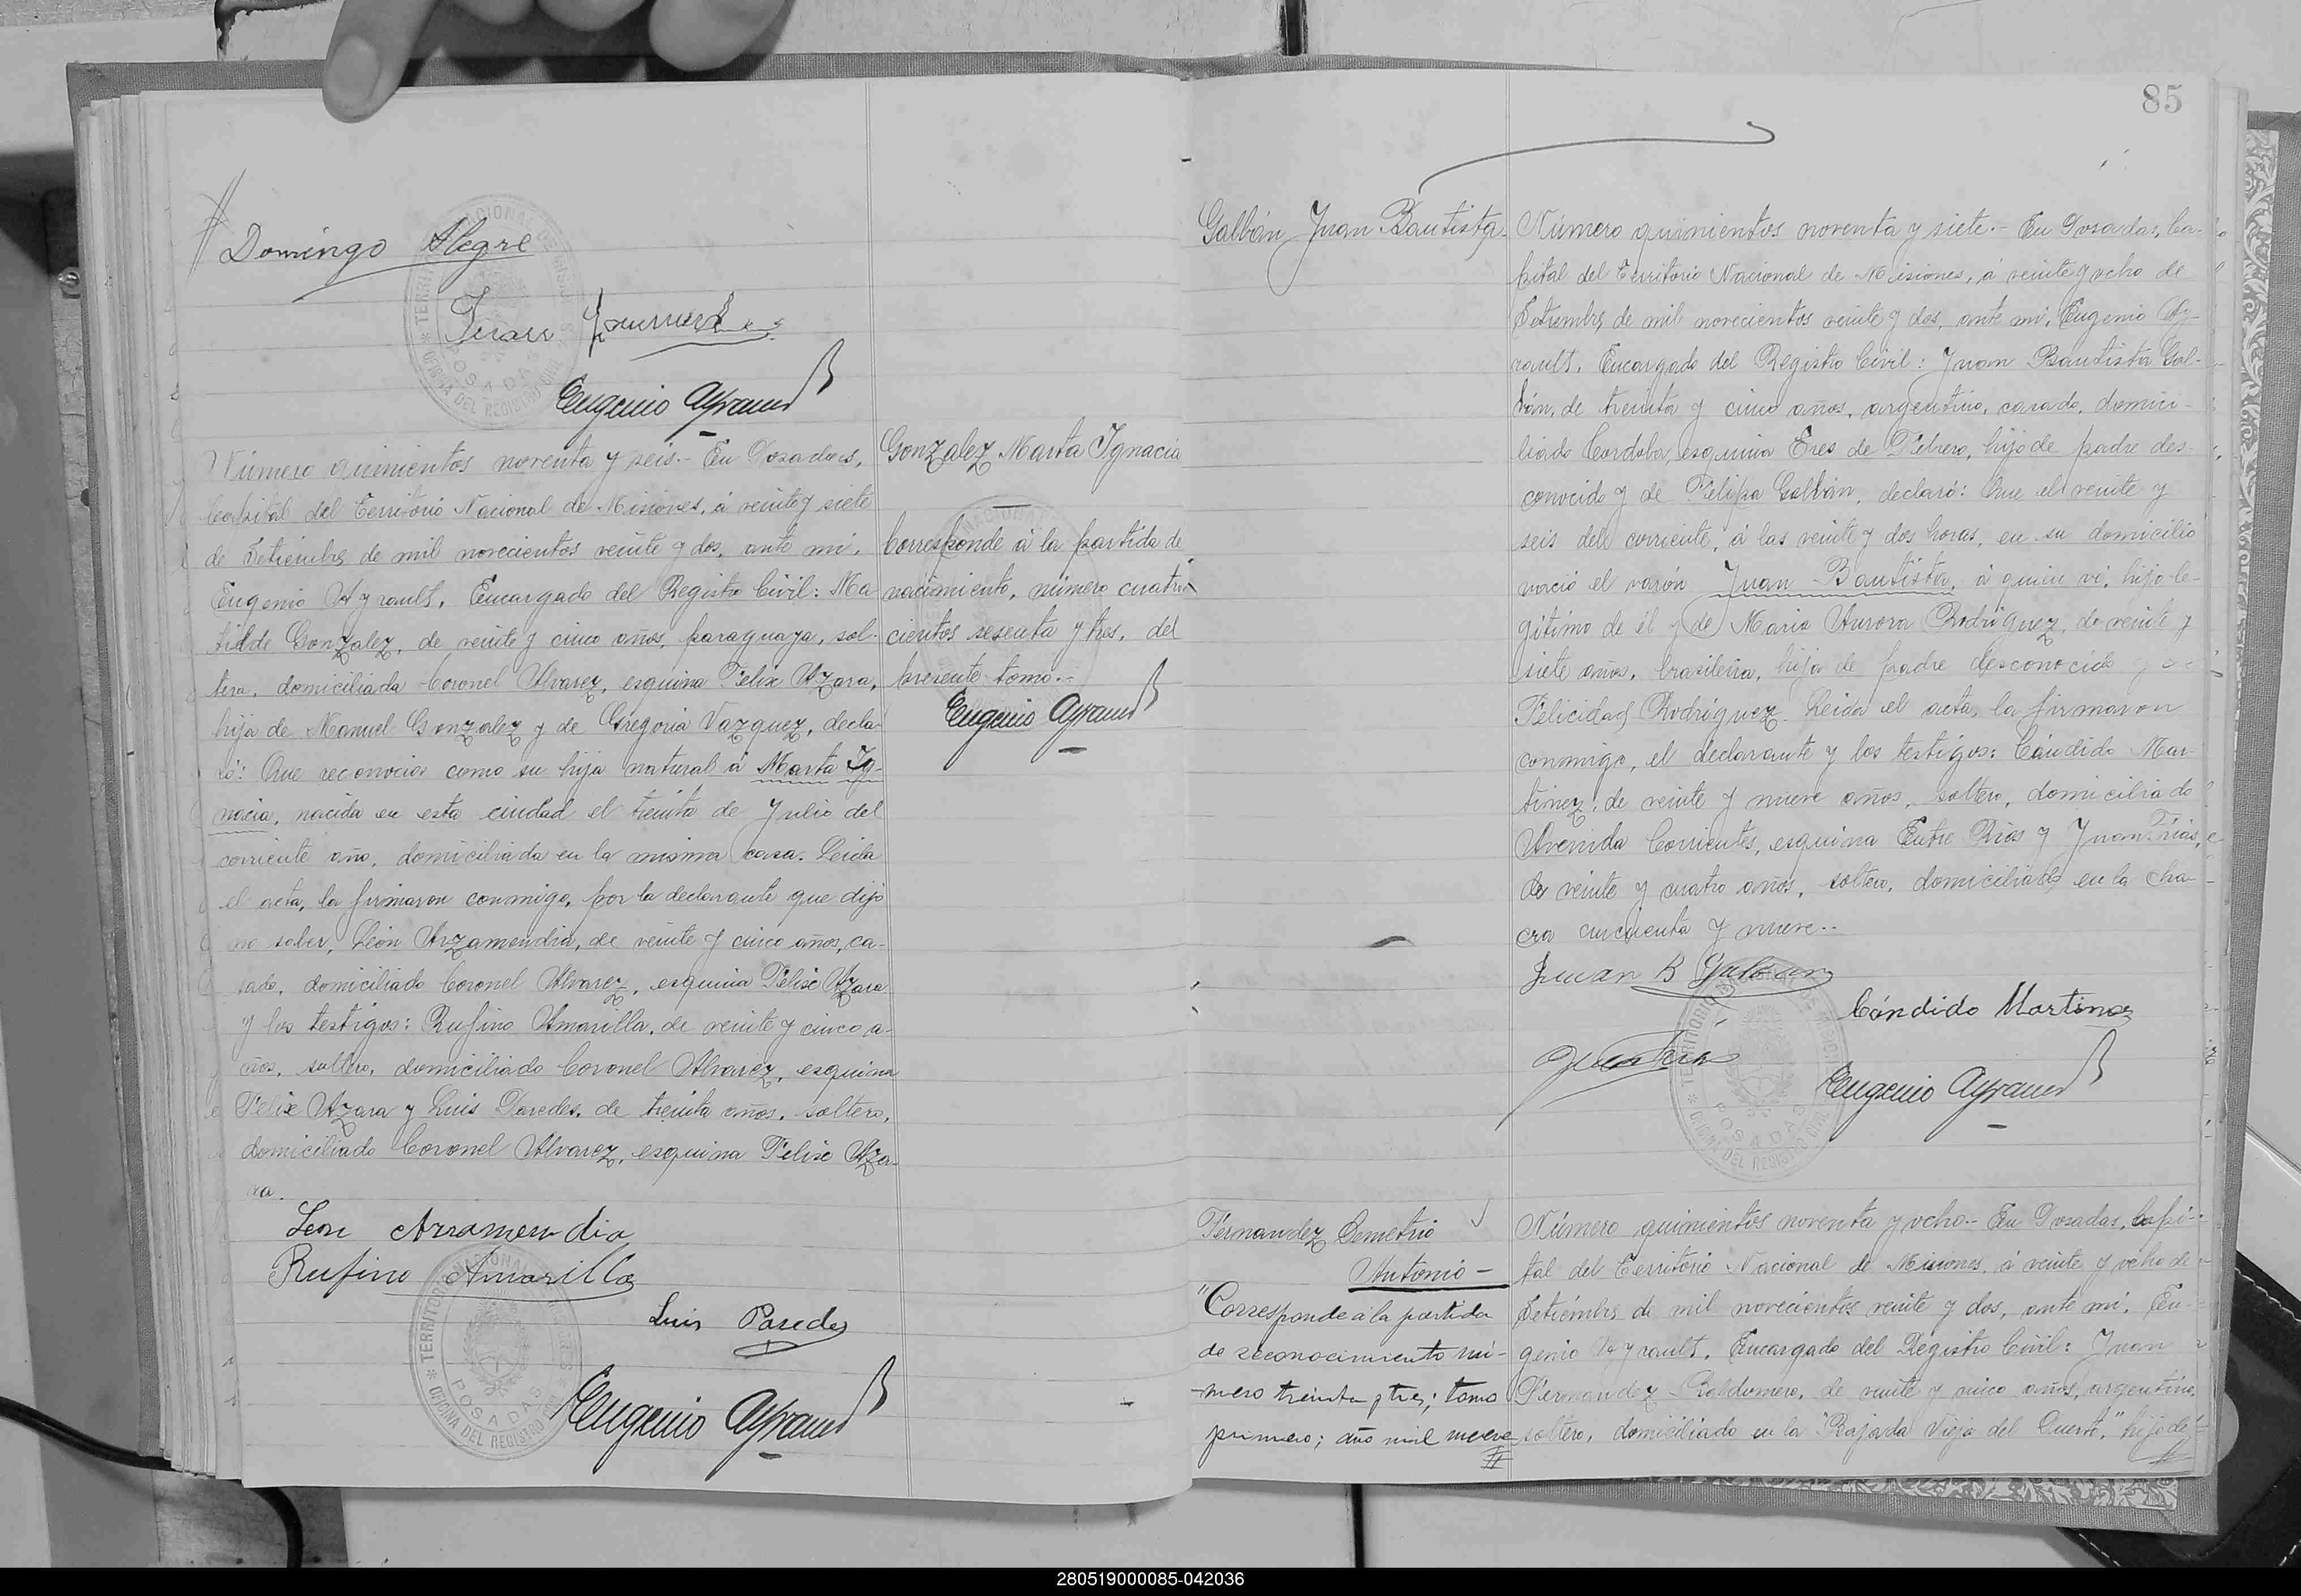 Domingo Alegre
Juan
Eugenio Ayrault
Número quinientos noventa y seis.- En Posadas,
Capital del Territorio Nacional de Misiones, á veinte y siete
de Setiembre de mil novecientos veinte y dos, ante mi,
Eugenio Ayrault, Encargado del Registro Civil: Ma-
tilde Gonzalez, de veinte y cinco años, paraguaya, sol-
tera, domiciliada Coronel Alvarez, esquina Felix Azara,
hija de Manuel Gonzalez y de Gregoria Vazquez, decla-
ró: Que reconocia como su hija natural á Marta Ig-
nacia, nacida en esta ciudad el treinta de Julio del
corriente año, domiciliada en la misma casa. Leida
el acta, la firmaron conmigo, por la declarante que dijo
no saber, León Arzamendia, de veinte y cinco años, ca-
sado, domiciliado Coronel Alvarez, esquina Felix Azara
y los testigos: Rufino Amarilla, de veinte y cinco a-
ños, soltero, domiciliado Coronel Alvarez, esquina
Felix Azara y Luis Paredes, de treinta años, soltero,
domiciliado Coronel Alvarez, esquina Felix Aza-
ra.
Leon Arzamendia
Rufino Amarilla
Luis Paredes
Eugenio Ayrault
Gonzalez Marta Ignacia
Corresponde á la partida de
nacimiento, número cuatro
cientos sesenta y tres, del
presente tomo.-
Eugenio Ayrault
85
Galbán Juan Bautista.
Número quinientos noventa y siete.- En Posadas, Ca-
pital del Territorio Nacional de Misiones, á veinte y ocho de
Setiembre de mil novecientos veinte y dos, ante mi, Eugenio Ay-
rault, Encargado del Registro Civil: Juan Bautista Gal-
bán, de treinta y cinco años, argentino, casado, domici-
liado Cordoba, esquina Tres de Febrero, hijo de padre des-
conocido y de Felipa Galbán, declaró: Que el veinte y
seis del corriente, á las veinte y dos horas, en su domicilio
nació el varón Juan Bautista, á quien vi, hijo le-
gitimo de él y de Maria Aurora Rodriguez, de veinte y
siete años, brasileña, hija de padre desconocido y de
Felicidad Rodriguez. Leida el acta, la firmaron
conmigo, el declarante y los testigos: Cándido Mar-
tinez, de veinte y nueve años, soltero, domiciliado
Avenida Corrientes, esquina Entre Rios y Juan Frias,
de veinte y cuatro años, soltero, domiciliado en la cha-
cra cincuenta y nueve..
Juan B Galban
Cándido Martinez
Juan Frias
Eugenio Ayrault
Fernandez Demetrio
Antonio -
"Corresponde á la partida
de reconocimiento nú-
mero treinta y tres; tomo
primero; año mil nueve
Número quinientos noventa y ocho.- En Posadas, Capi-
tal del Territorio Nacional de Misiones, á veinte y ocho de
Setiembre de mil novecientos veinte y dos, ante mi, Eu-
genio Ayrault, Encargado del Registro Civil: Juan
Fernandez Baldomero, de veinte y cinco años, argentino,
soltero, domiciliado en la "Bajada Vieja del Puerto," hijo de
TERRITORIO NACIONAL DE MISIONES
POSADAS
OFICINA DEL REGISTRO CIVIL
280519000085-042036